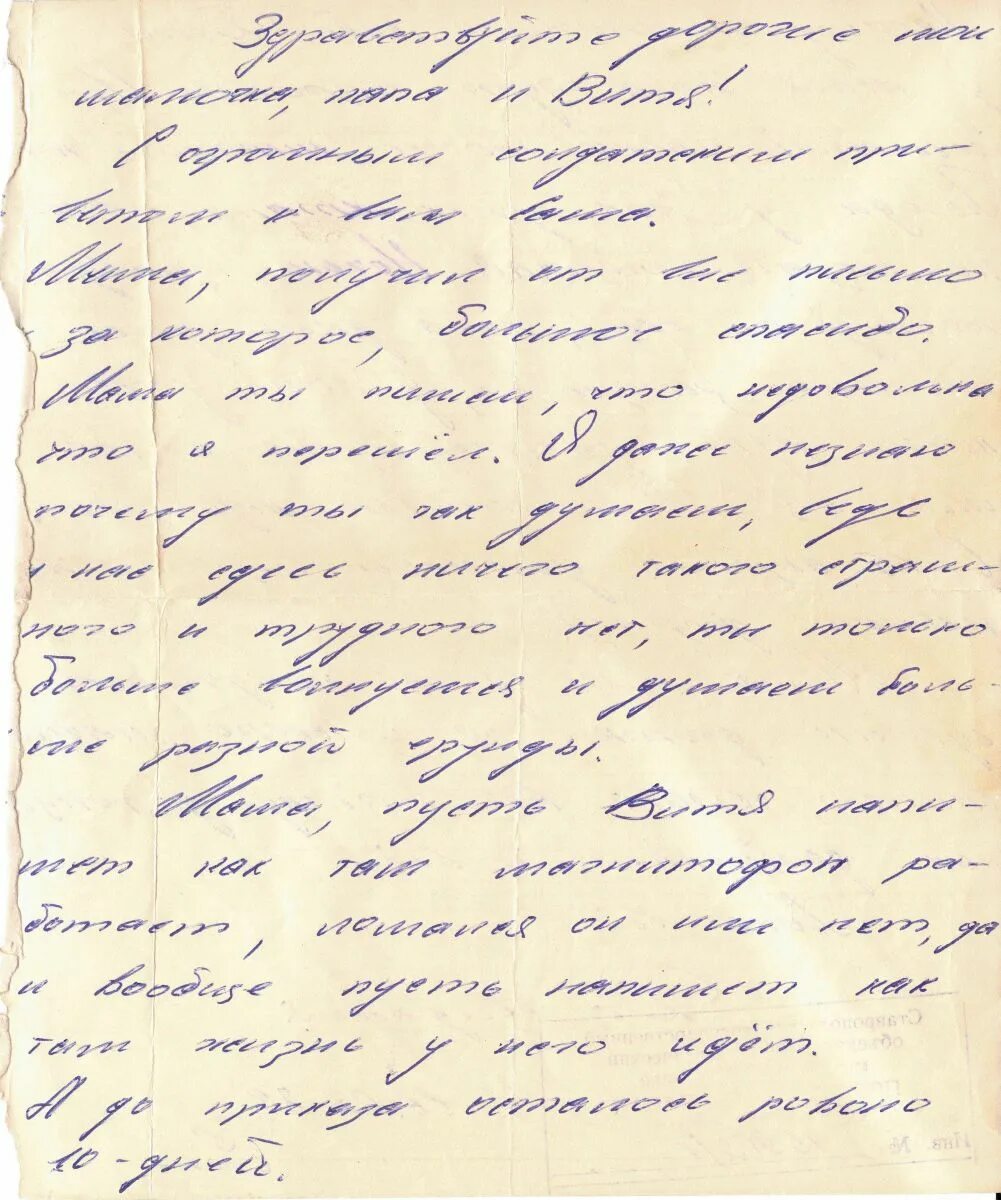 Здравствуйте дорогие мои
мамочка, папа и Витя!
С огромным солдатским при-
ветом к вам Саша.
Мама, получил от вас письмо
за которое, большое спасибо.
Мама ты пишеш, что недовольна
что я перешёл. Я даже незнаю
почему ты так думаеш, ведь
у нас здесь ничего такого страш-
ного и трудного нет, ты только
больше волнуешся и думаеш боль-
ше разной ерунды.
Мама, пусть Витя напи-
шет как там магнитофон ра-
ботает, ломался он или нет, да
и вообще пусть напишет как
там жизнь у него идёт.
А до приказа осталось ровоно
10-дней.